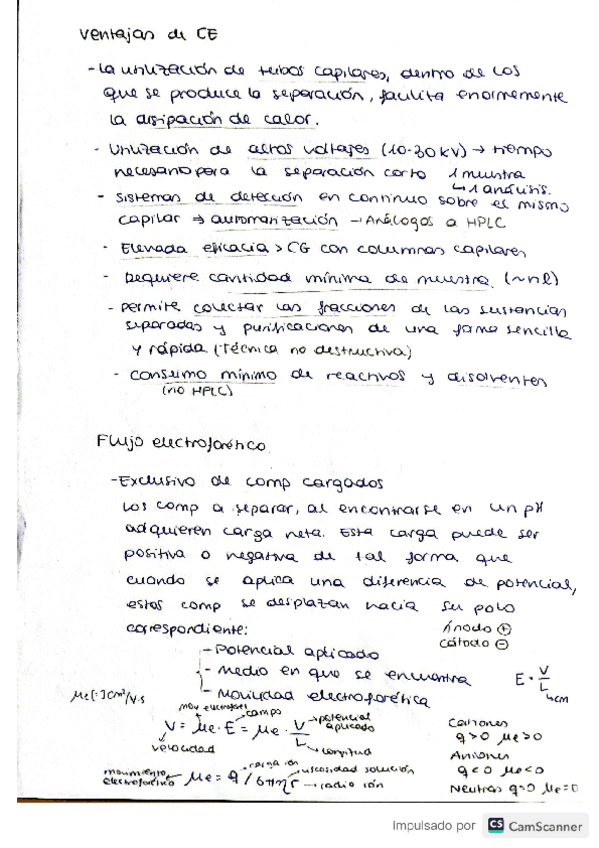 Ventajas de CE
- La utilización de tubos capilares, dentro de los
que se produce la separación, facilita enormemente
la disipación de calor.
- Utilización de altos voltajes (10-30 kV) → tiempo
necesario para la separación corto 1 muestra
↳ 1 análisis.
- Sistemas de detección en continuo sobre el mismo
capilar ⇒ automatización → Análogos a HPLC
- Elevada eficacia > CG con columnas capilares
- Requiere cantidad mínima de muestra (~nl)
- Permite colectar las fracciones de las sustancias
separadas y purificaciones de una forma sencilla
y rápida (Técnica no destructiva)
- Consumo mínimo de reactivos y disolventes
(no HPLC)
Flujo electroforético
- Exclusivo de comp cargados
Los comp a separar, al encontrarse en un pH
adquieren carga neta. Esta carga puede ser
positiva o negativa de tal forma que
cuando se aplica una diferencia de potencial,
estos comp se desplazan hacia su polo
correspondiente:
Ánodo ⊕
Cátodo ⊖
- Potencial aplicado
- Medio en que se encuentra
- Movilidad electroforética
E = V/L
↳ cm
μe [=] cm²/V·s
mov electroforét
campo
V = μe · E = μe · V/L
→ potencial aplicado
→ longitud
velocidad
carga ion
movimiento electroforético ← μe = q / 6πηr
→ viscosidad solución
→ radio ión
Cationes
q>0 μe>0
Aniones
q<0 μe<0
Neutras q=0 μe=0
Impulsado por CS CamScanner